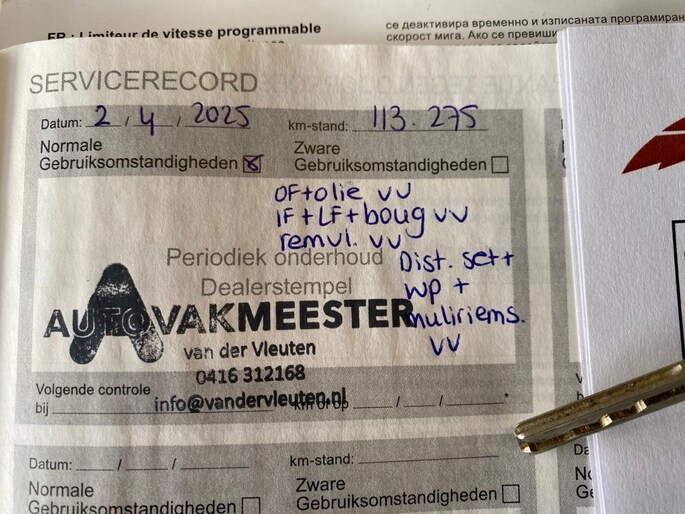 FR : Limiteur de vitesse programmable
се деактивира временно и изписаната програмиран
скорост мига. Ако се превиши
SERVICERECORD
Datum: 2 / 4 / 2025 km-stand: 113.275
Normale
Gebruiksomstandigheden
Zware
Gebruiksomstandigheden
OF+olie vv
IF+LF+boug vv
remvl. vv
Periodiek onderhoud
Dist. set+
Dealerstempel
wp +
AUTOVAKMEESTER
muliriems.
van der Vleuten
vv
0416 312168
Volgende controle
bij info@vandervleuten.nl km of op / / *
Datum: / / km-stand:
Normale
Gebruiksomstandigheden
Zware
Gebruiksomstandigheden